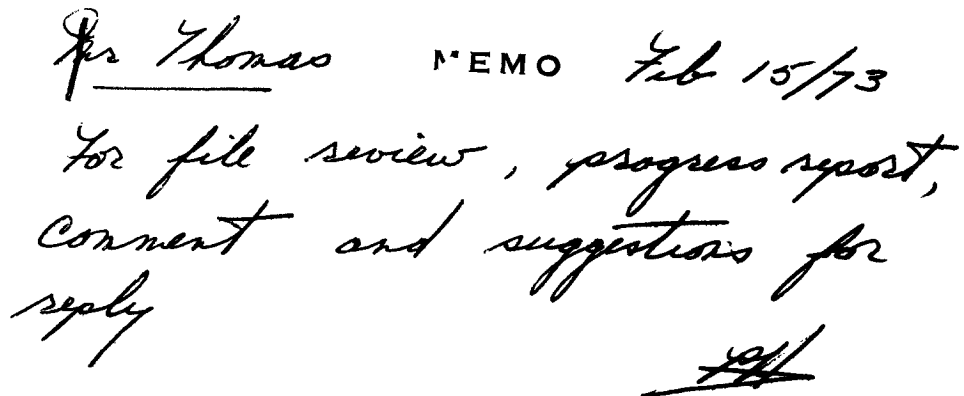 Mr Thomas MEMO Feb 15/73
For file review, progress report,
comment and suggestions for
reply